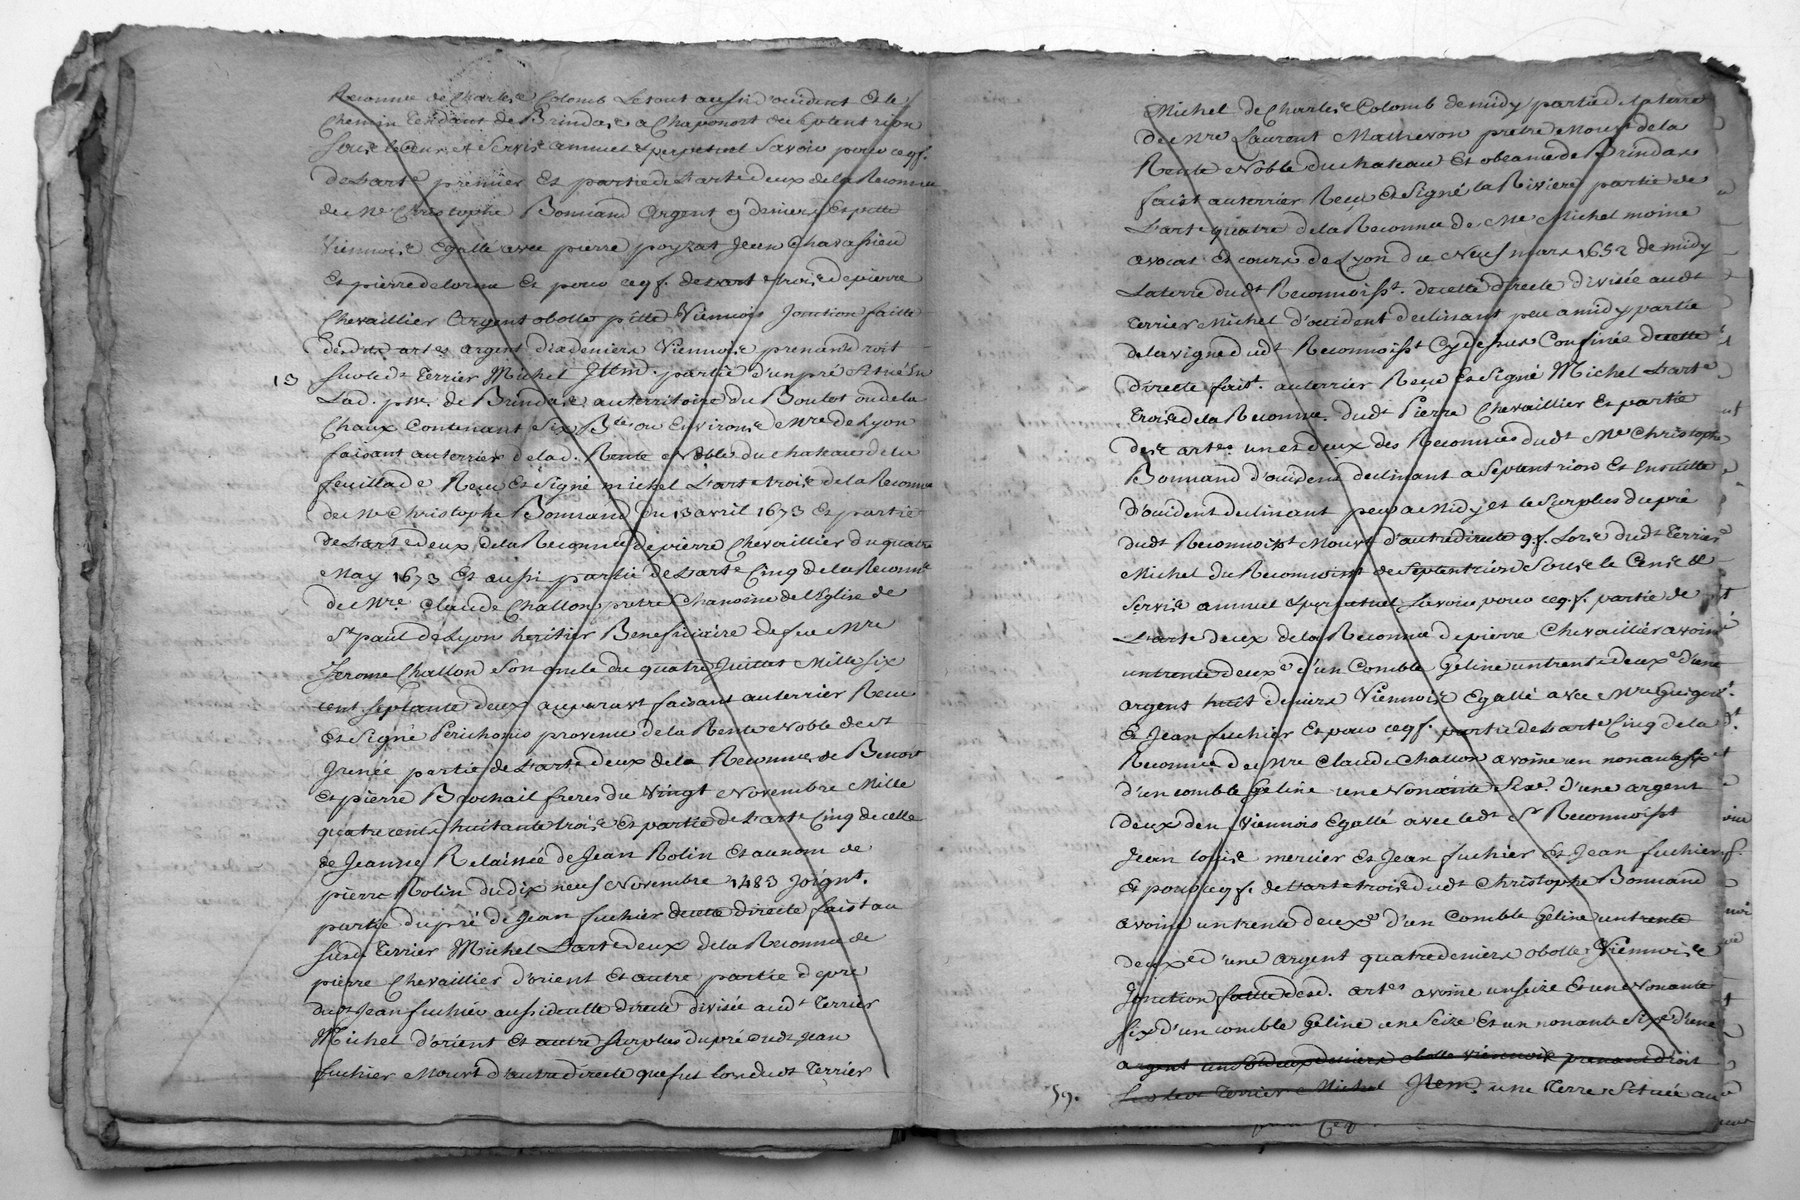 Reconnue de Charles Colomb le tout aussi d'occident et le
Chemin tendant de Brindas a Chaponost de Septentrion
Sous le Cens et Servis annuel et perpetuel Savoir pour ce q f.
de L'arte premier Et partie de L'arte deux de la Reconnue
de Me Christophe Bonnand Argent 9 deniers Et pitte
Viennois Egallé avec pierre poyzat Jean Chavassieu
Et pierre delorme Et pour ce q f. de L'art trois de pierre
Chevaillier Argent obolle pitte Viennois Jonction faitte
desdits artes argent dix deniers Viennois prenand droit
Sur le dt Terrier Michel Item. partie d'un pré Situé En
13 Lad. psse. de Brindas, au territoire du Boulot ou de la
Chaux Contenant Six Btes ou Environs Mre de Lyon
faisant au terrier de lad. Rente Noble du chateau de la
feuillade Receu Et Signé michel L'arte trois de la Reconnue
de Me Christophe Bonnand Du 13 avril 1673 Et partie
de L'arte deux de la Reconnue de pierre Chevaillier du quatre
May 1673 Et aussi partie de L'arte Cinq de la Reconnue
de Mre. Claude Challon pretre Chanoine de l'Eglise de
St paul de Lyon heritier Beneficiaire de feu Mre
Jerome Challon Son oncle du quatre Juillet Mille Six
cent Septante deux auparavt faisant au terrier Receu
Et Signé Perichonis provenu de la Rente Noble de St
Irenée partie de L'arte deux de la Reconnue de Benoit
Et pierre Brochail freres du Vingt Novembre Mille
quatre cents huitante trois Et partie de L'arte Cinq de celle
de Jeanne Relaissée de Jean Rolin Et au nom de
pierre Rolin du dix neuf Novembre 1483 Joignt.
partie du pré de Jean fuchier de cette directe faist au
Susd. Terrier Michel L'arte deux de la Reconnue de
pierre Chevaillier d'orient Et autre partie d
dudt Jean fuchier aussi de cette directe divisée audt Terrier
Michel d'orient Et autre Surplus du pré dudt Jean
fuchier Mouvt d'autre directe que fut lors dudt Terrier
Michel de Charles Colomb de midy partie de la terre
de Mre Laurent Mathevon pretre Mouvt de la
Rente Noble du chateau Et obeance de Brindas
faist au terrier Receu Et Signé la Riviere partie de
L'arte quatre de la Reconnue de Me Michel moine
avocat Et cours de Lyon du Neuf mars 1652 de midy
La terre dudt Reconnoisst. de cette directe divisée audt
terrier Michel d'occident declinant peu a midy partie
de la vigne dudt Reconnoisst Cy dessus Confinée de cette
directe faist. au terrier Receu Et Signé Michel L'arte
trois de la Reconnue. dudt Pierre Chevaillier Et partie
des artes. un et deux des Reconnues dudt Me Christophe
Bonnand d'occident declinant a Septentrion Et Ensuitte
d'occident declinant peu a Midy et le Surplus du pré
dudt Reconnoisst Mouvt d'autre directe q f. Lors dudt Terrier
Michel du Reconnoisst de Septentrion Sous le Cens Et
Servis annuel Et perpetuel Savoir pour ce q. f. partie de
L'arte deux de la Reconnue de pierre Chevaillier avoine
un trente deuxe d'un Comble Geline un trente deuxe d'une
argent huit deniers Viennois Egallé avec Mre
Et Jean fuchier Et pour ce q f. partie de L'arte Cinq de la
Reconnue de Mre Claude Challon avoine un nonante six
d'un comble Geline une Nonante Sixe. d'une argent
deux den. Viennois Egallé avec ledt Sr Reconnoisst
Jean louis mercier Et Jean fuchier Et Jean fuchier
Et pour ce q f. de L'arte trois dudt Christophe Bonnand
avoine un trente deuxe d'un Comble Geline un trente
deuxe d'une argent quatre deniers obolle Viennois
Jonction faitte desd. artes avoine un seize Et une Nonante
Six d'un comble Geline une Seize Et un nonante Sixe d'une
argent un Sol deux deniers obolle viennois prenant droit
Sur ledt Terrier Michel Item. une Terre Située au
59.